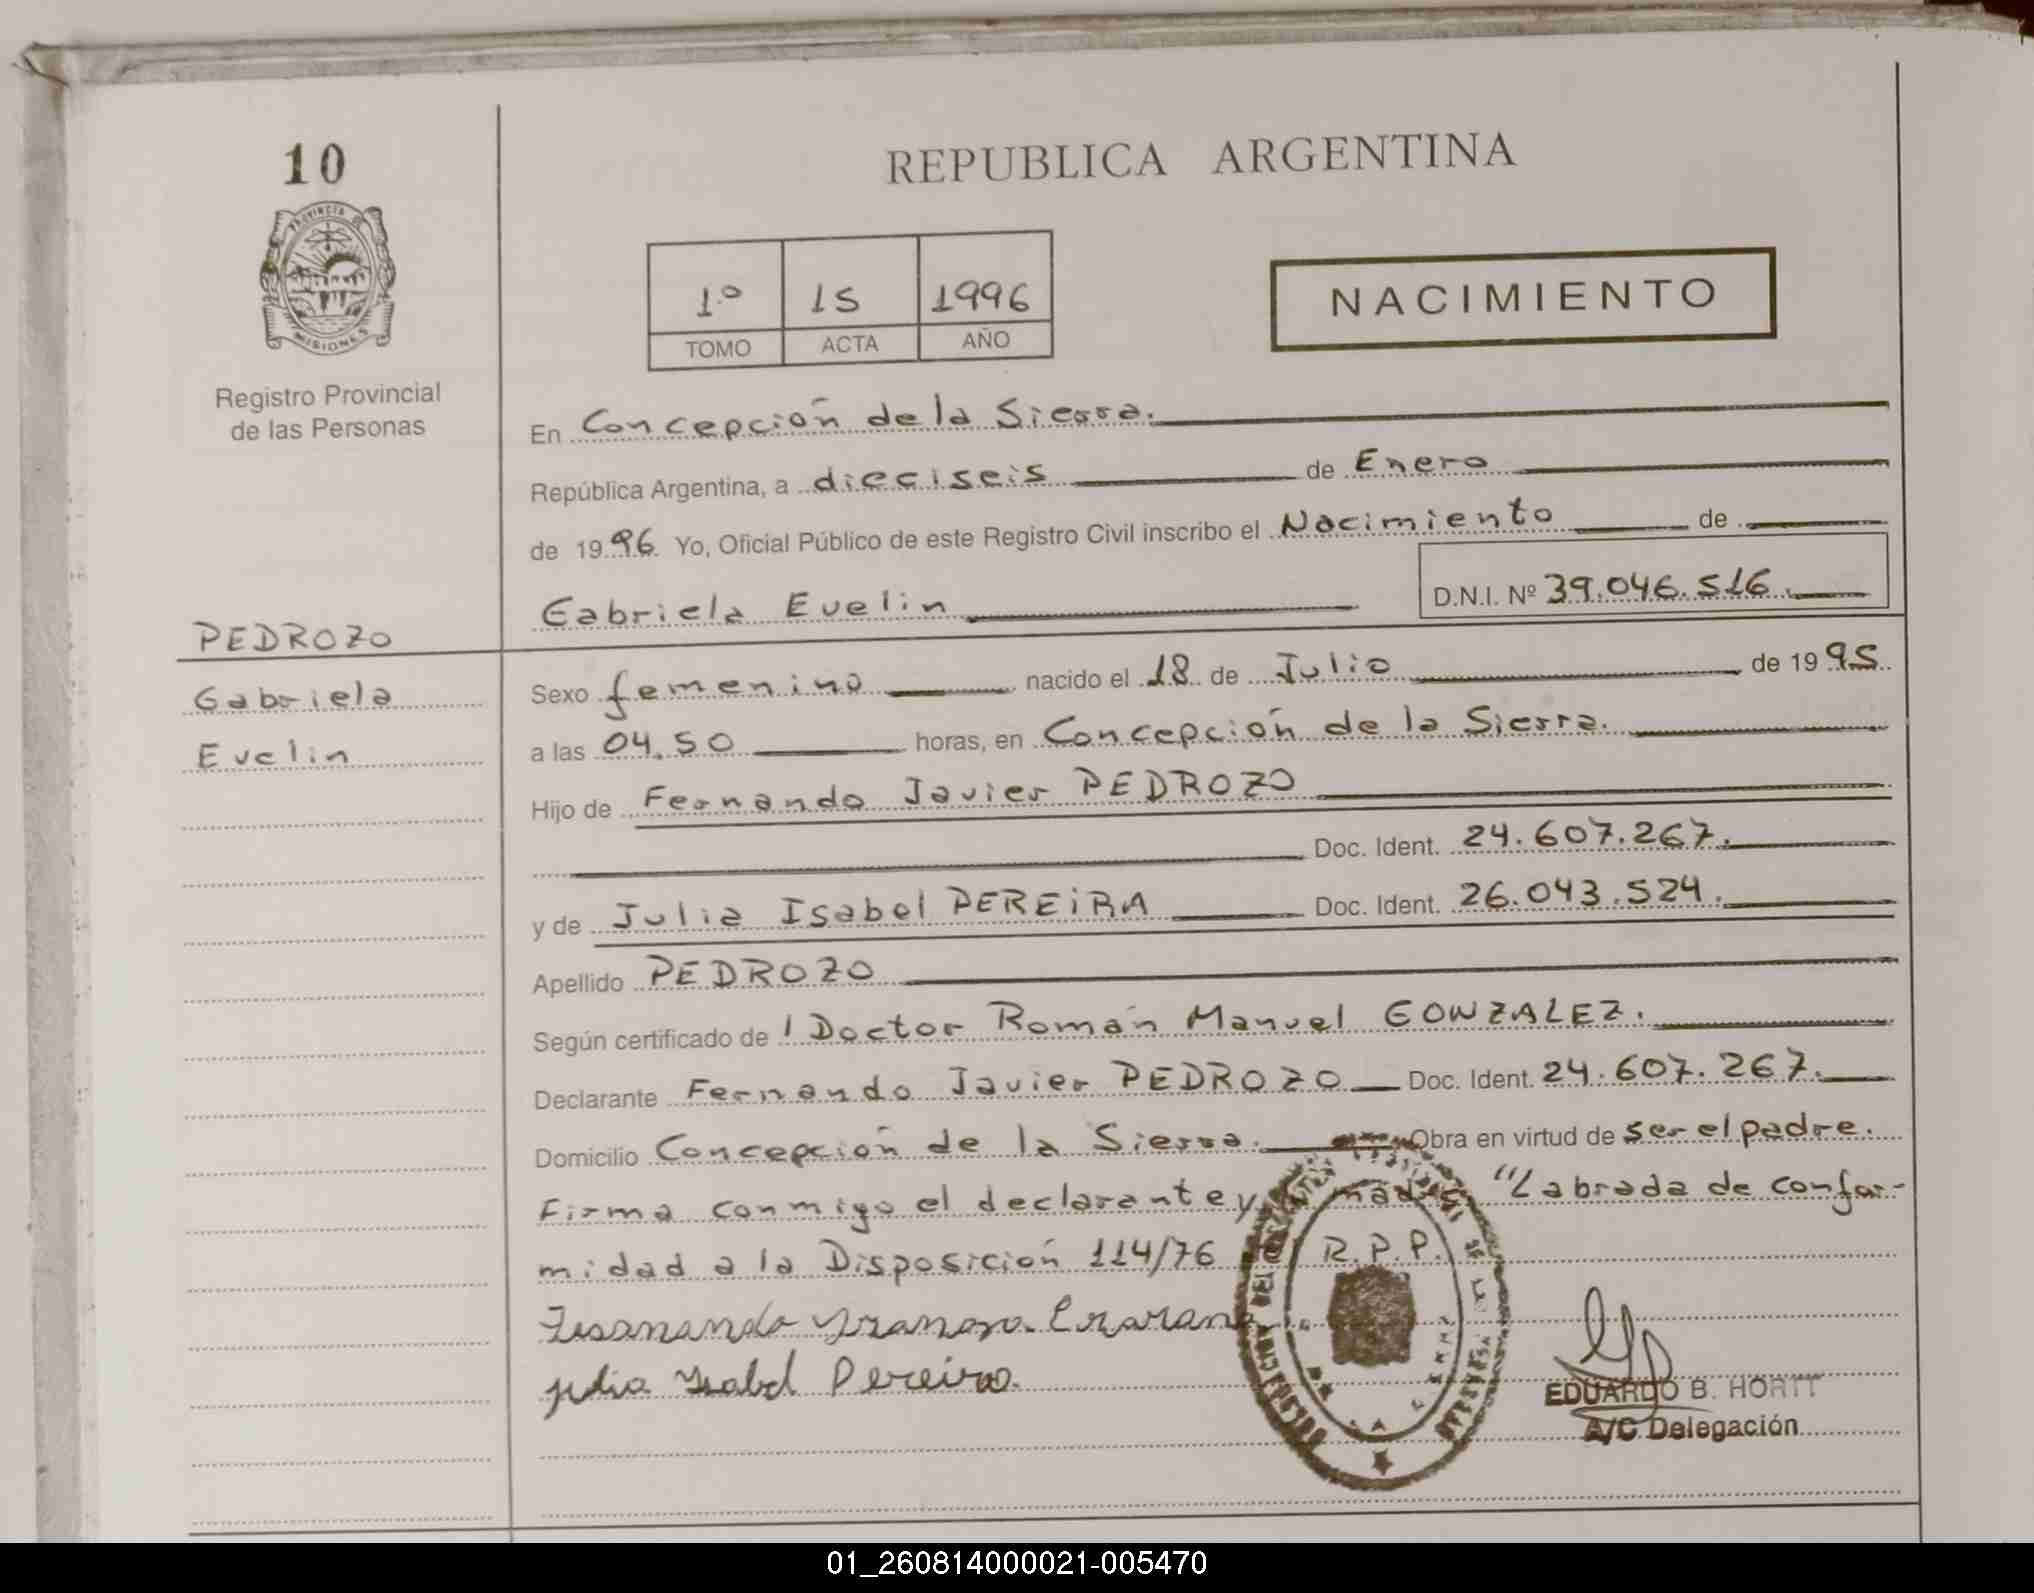 10
REPUBLICA ARGENTINA
PROVINCIA DE
MISIONES
Registro Provincial
de las Personas
1º 15 1996
TOMO ACTA AÑO
NACIMIENTO
En Concepción de la Sierra.
República Argentina, a dieciseis de Enero
de 1996 Yo, Oficial Público de este Registro Civil inscribo el Nacimiento de
Gabriela Evelin D.N.I. Nº 39.046.516.
PEDROZO
Gabriela
Evelin
Sexo femenino nacido el 18 de Julio de 1995
a las 04.50 horas, en Concepción de la Sierra.
Hijo de Fernando Javier PEDROZO
Doc. Ident. 24.607.267.
y de Julia Isabel PEREiRA Doc. Ident. 26.043.524.
Apellido PEDROZO
Según certificado de l Doctor Román Manuel GONZALEZ.
Declarante Fernando Javier PEDROZO Doc. Ident. 24.607.267.
Domicilio Concepción de la Sierra. Obra en virtud de ser el padre.
Firma conmigo el declarante y madre "Labrada de confor-
midad a la Disposición 114/76 R.P.P.
Julia Isabel Pereira.
EDUARDO B. HORTT
A/C Delegación
01_260814000021-005470